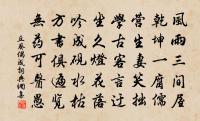 風雨三間屋
乾坤一腐儒
營生妻笑拙
學古客言迂
坐久燈花落
吟成硯水枯
方書俱遍覧
無藥可醫愚
丘葵偶成詞典網集